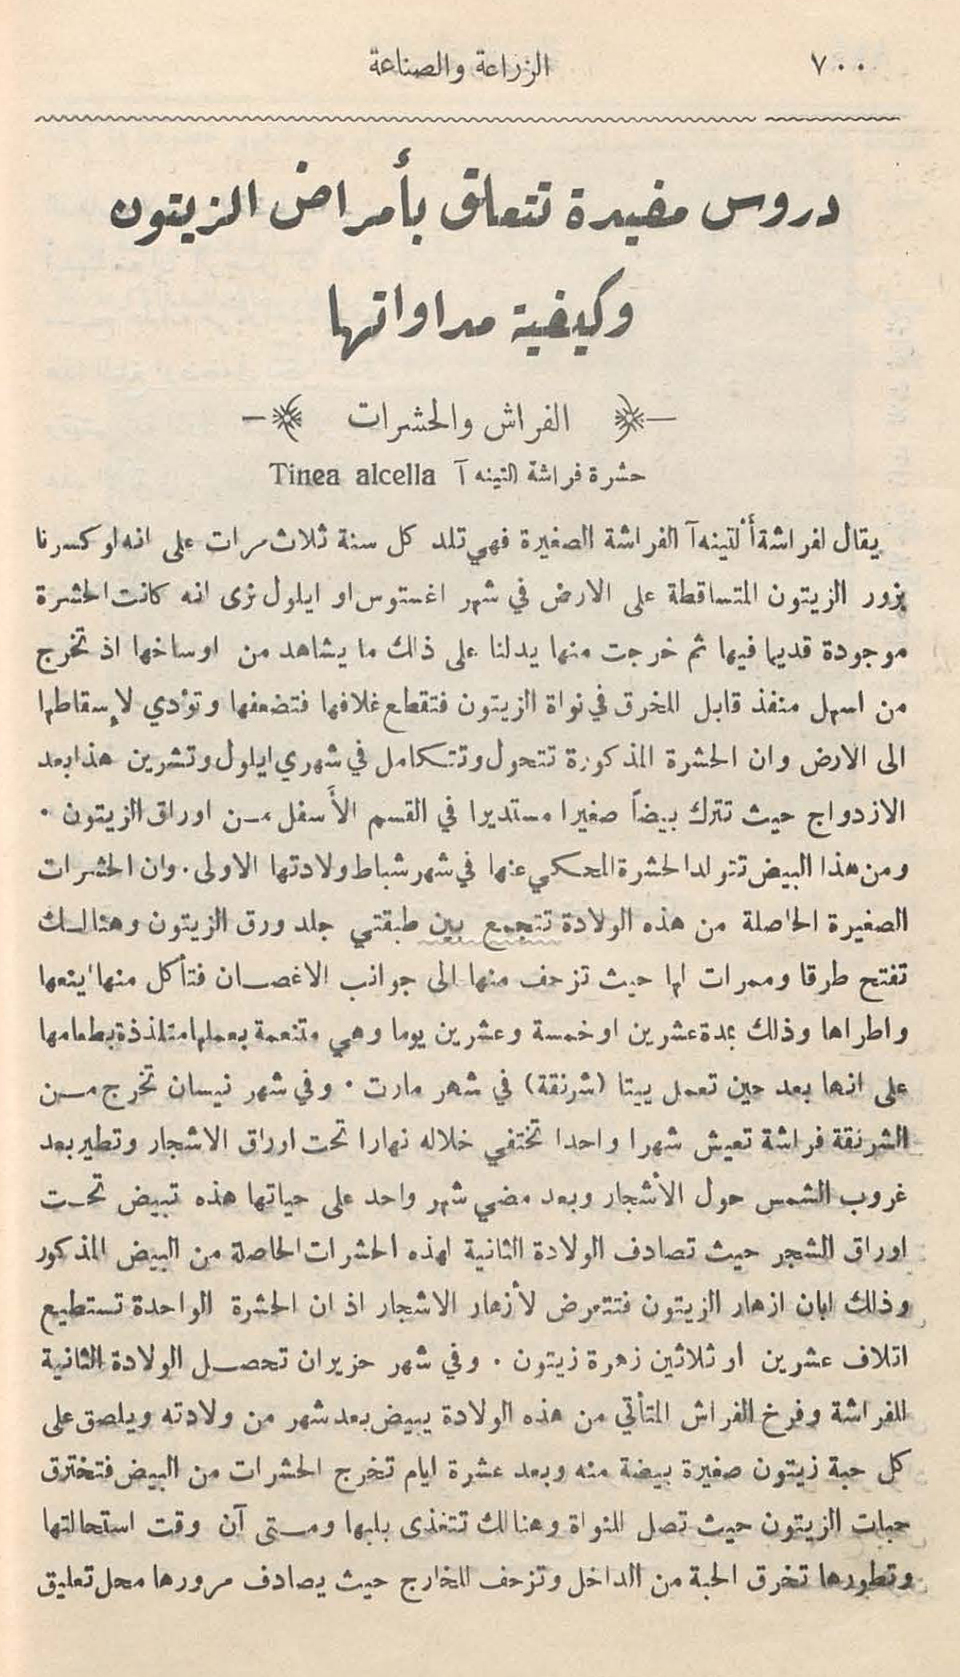 ٧٠٠
الزراعة والصناعة
دروس مفيدة تتعلق بأمراض الزيتون
وكيفية مداواتها
الفراش والحشرات
حشرة فراشة التينه آ Tinea alcella
يقال لفراشة ألتينه آ الفراشة الصغيرة فهي تلد كل سنة ثلاث مرات على انه او كسرنا
بزور الزيتون المتساقطة على الارض في شهر اغستوس او ايلول نرى انه كانت الحشرة
موجودة قديما فيها ثم خرجت منها يدلنا على ذلك ما يشاهد من اوساخها اذ تخرج
من اسهل منفذ قابل للخرق في نواة الزيتون فتقطع غلافها فتضعفها وتؤدي لإسقاطها
الى الارض وان الحشرة المذكورة تتحول وتتكامل في شهري ايلول وتشرين هذا بعد
الازدواج حيث تترك بيضاً صغيرا مستديرا في القسم الأسفل من اوراق الزيتون ٠
ومن هذا البيض تتولد الحشرة المحكي عنها في شهر شباط ولادتها الاولى ٠ وان الحشرات
الصغيرة الحاصلة من هذه الولادة تتجمع بين طبقتي جلد ورق الزيتون وهنالك
تفتح طرقا وممرات لها حيث تزحف منها الى جوانب الاغصان فتأكل منها ينعها
واطراها وذلك بمدة عشرين او خمسة وعشرين يوما وهي متنعمة بعملها متلذذة بطعامها
على انها بعد حين تعمل بيتا (شرنقة) في شهر مارت ٠ وفي شهر نيسان تخرج من
الشرنقة فراشة تعيش شهرا واحدا تختفي خلاله نهارا تحت اوراق الاشجار وتطير بعد
غروب الشمس حول الأشجار وبعد مضي شهر واحد على حياتها هذه تبيض تحت
اوراق الشجر حيث تصادف الولادة الثانية لهذه الحشرات الحاصلة من البيض المذكور
وذلك ابان ازهار الزيتون فتتعرض لأزهار الاشجار اذ ان الحشرة الواحدة تستطيع
اتلاف عشرين او ثلاثين زهرة زيتون ٠ وفي شهر حزيران تحصل الولادة الثانية
للفراشة وفرخ الفراش المتأتي من هذه الولادة يبيض بعد شهر من ولادته ويلصق على
كل حبة زيتون صغيرة بيضة منه وبعد عشرة ايام تخرج الحشرات من البيض فتخترق
حبات الزيتون حيث تصل للنواة وهنالك تتغذى بلبها ومتى آن وقت استحالتها
وتطورها تخرق الحبة من الداخل وتزحف للخارج حيث يصادف مرورها محل تعليق